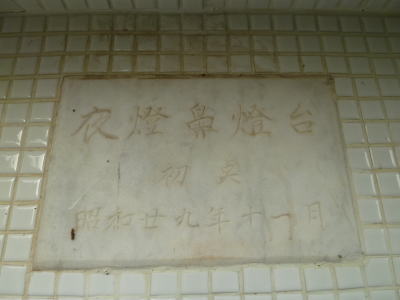 夜燈鼻燈台
初奌
昭和廿九年十一月